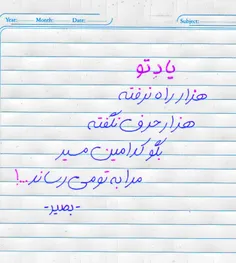 Year: Month: Date: Subject:
یادِ تو
هزار راه نرفته
هزار حرف نگفته
بگو کدامین مسیر
مرا به تو می رساند...!
-بصیر-